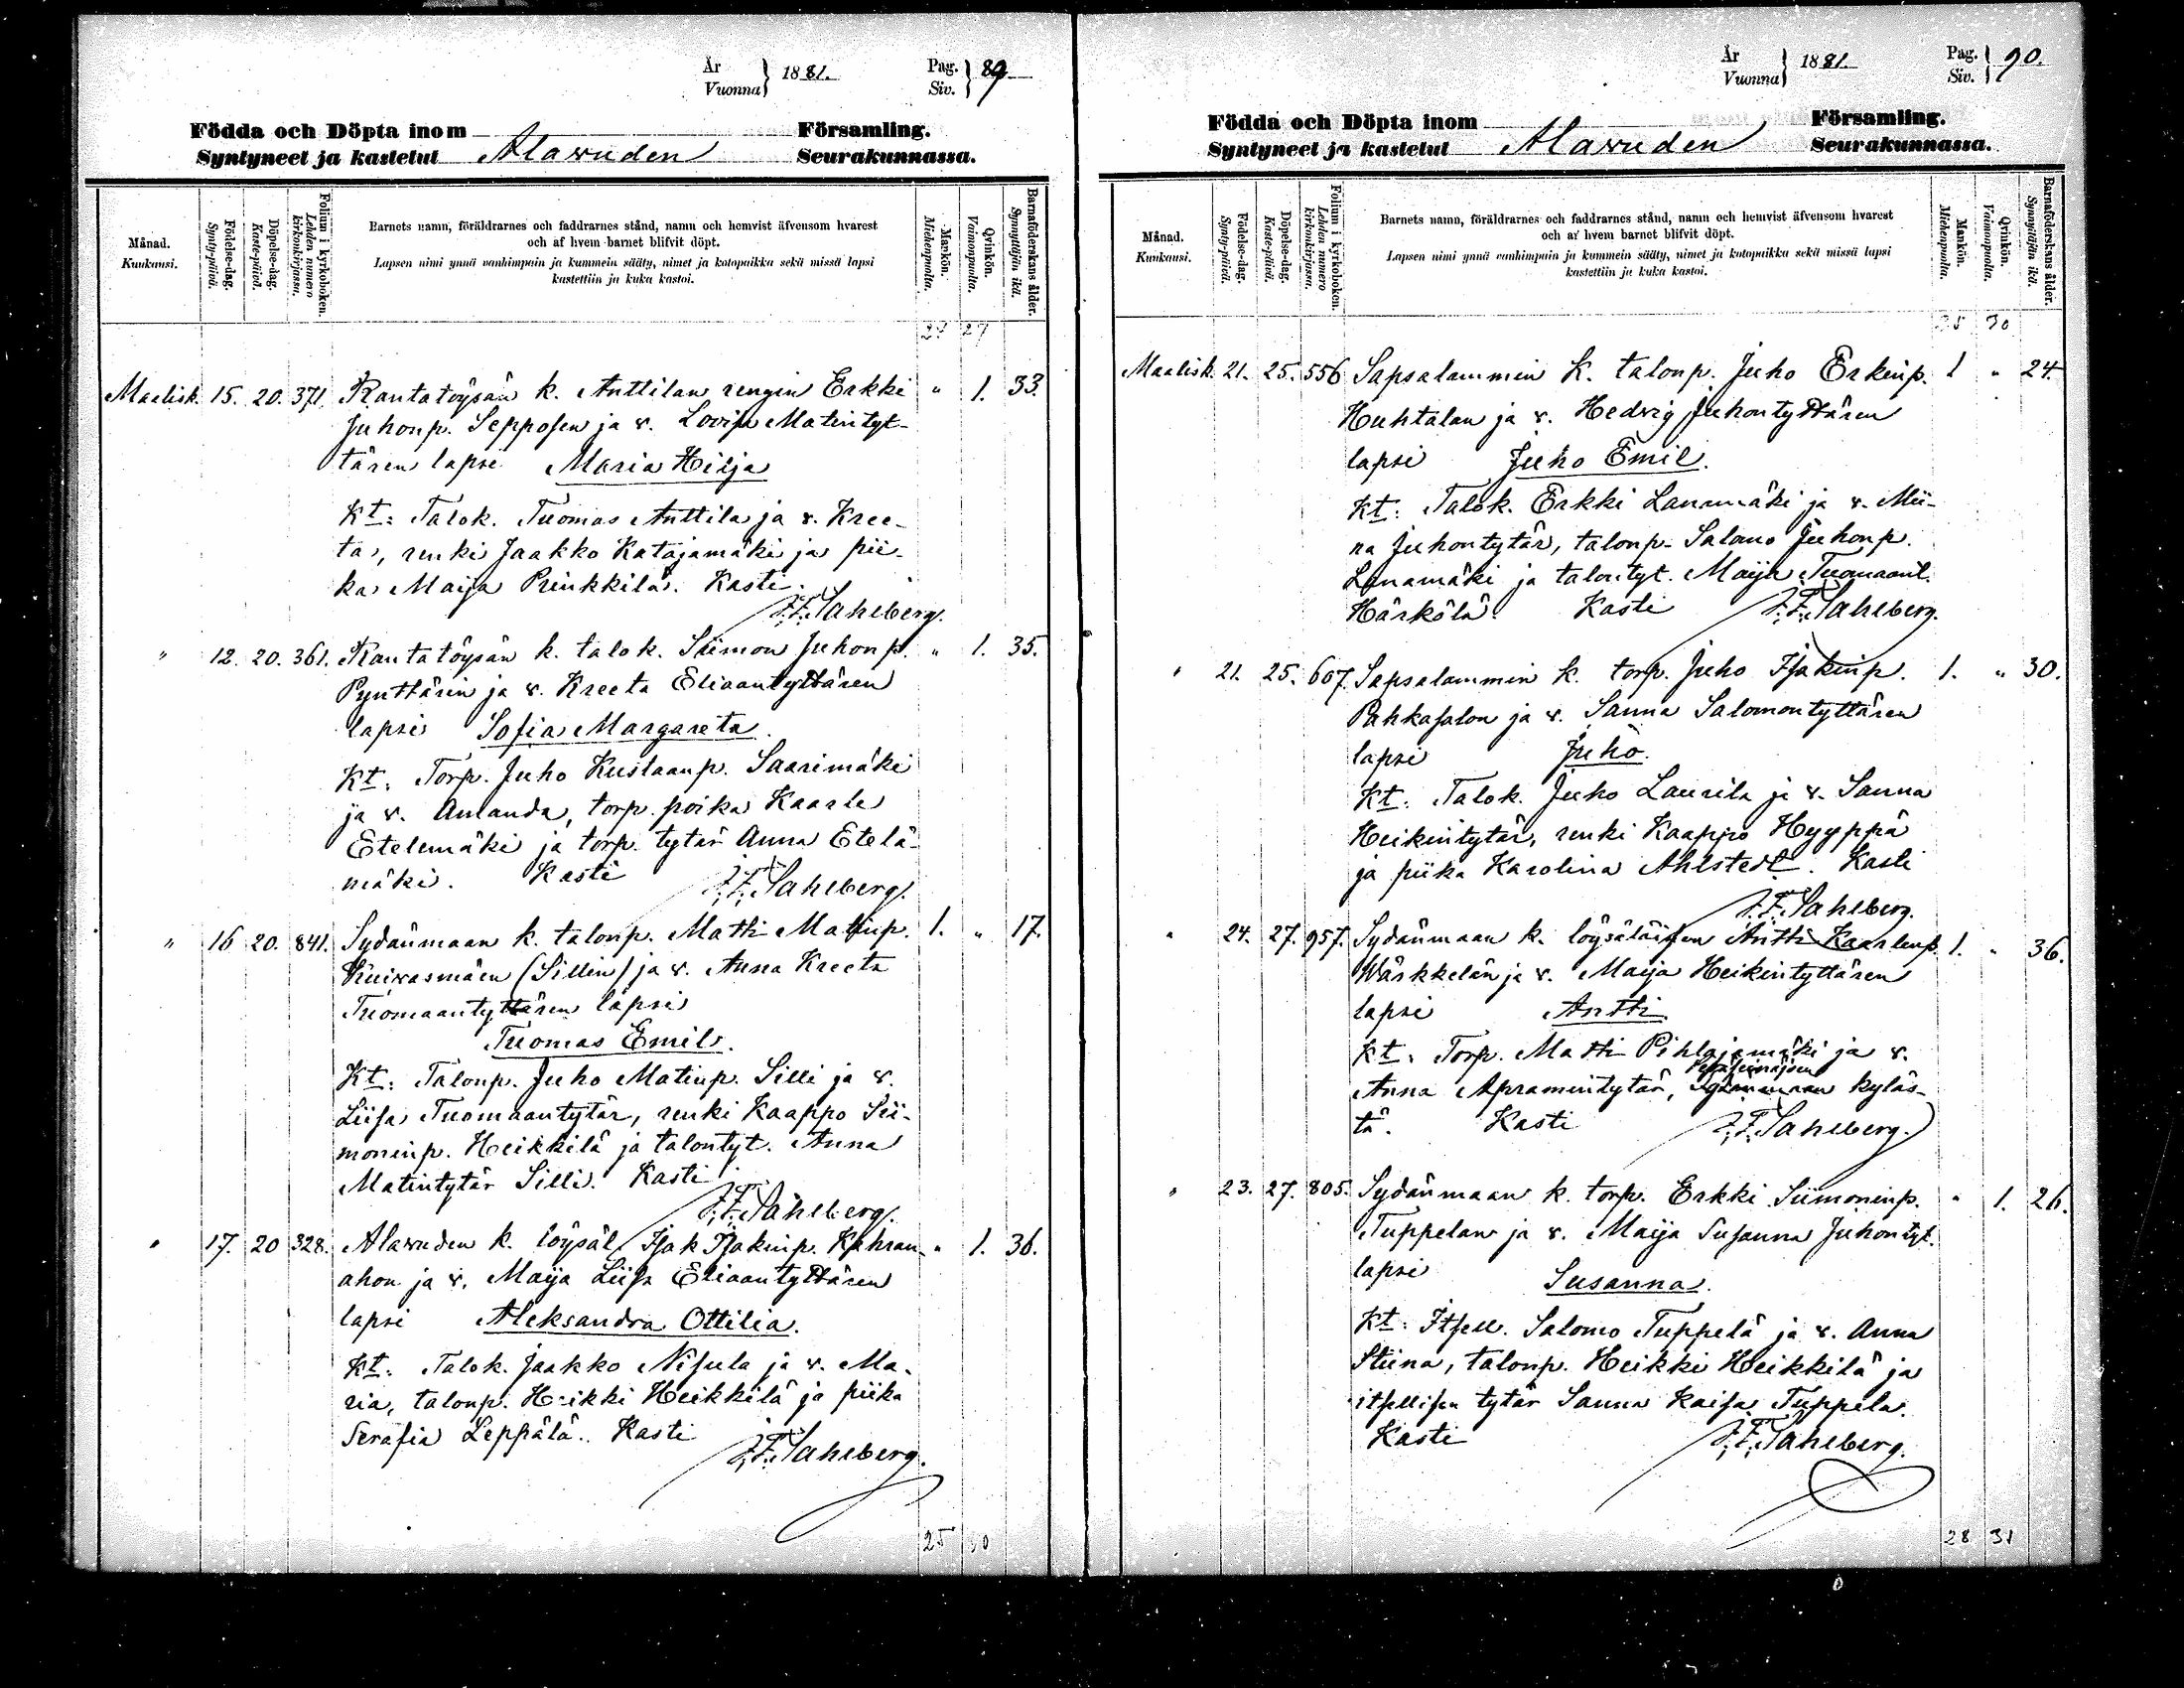 År
Vuonna } 1881.
Pag.
Siv. } 89
Födda och Döpta inom Församling.
Syntyneet ja kastetut Alavuden Seurakunnassa.
Månad.
Kuukausi.
Födelse-dag.
Synty-päivä.
Döpelse-dag.
Kaste-päivä.
Folium i kyrkoboken.
Lehden numero
kirkonkirjassa.
Barnets namn, föräldrarnes och faddrarnes stånd, namn och hemvist äfvensom hvarest
och af hvem barnet blifvit döpt.
Lapsen nimi ynnä vanhimpain ja kummein sääty, nimet ja kotopaikka sekä missä lapsi
kastettiin ja kuka kastoi.
Mankön.
Miehenpuolta.
Qvinkön.
Vaimonpuolta.
Barnaföderskans ålder.
Synnyttäjän ikä.
27
Maalisk. 15. 20. 371. Rantatöysän k. Anttilan rengin Erkki " 1. 33.
Juhonp. Sepposen ja v. Lovisa Matintyt-
tären lapsi Maria Hilja
Kt: Talok. Tuomas Anttila ja v. Kree-
ta, renki Jaakko Katajamäki ja pii-
ka Maija Prinkkilä. Kasti
J. F. Sahlberg.
" 12. 20. 361. Rantatöysän k. talok. Siimon Juhonp. " 1. 35.
Pynttärin ja v. Kreeta Eliaantyttären
lapsi Sofia Margareta.
Kt: Torp. Juho Kustaanp. Saarimäki
ja v. Amanda, torp. poika Kaarle
Etelemäki ja torp. tytär Anna Etelä-
mäki. Kasti J. F. Sahlberg.
" 16 20. 841. Sydänmaan k. talonp. Matti Matinp. 1. " 17.
Kuivasmäen (Sillin) ja v. Anna Kreeta
Tuomaantyttären lapsi
Tuomas Emil.
Kt: Talonp. Juho Matinp. Silli ja v.
Liisa Tuomaantytär, renki Kaappo Sii-
moninp. Heikkilä ja talontyt. Anna
Matintytär Silli. Kasti
J. F. Sahlberg.
" 17. 20 328. Alavuden k. löysäl. Isak Isakinp. Kahran- " 1. 36.
ahon ja v. Maija Liisa Eliaantyttären
lapsi Aleksandra Ottilia.
Kt: Talok. Jaakko Nisula ja v. Ma-
ria, talonp. Heikki Heikkilä ja piika
Serafia Leppälä. Kasti
J. F. Sahlberg.
25 30
År
Vuonna } 1881.
Pag.
Siv. } 90.
Födda och Döpta inom Församling.
Syntyneet ja kastetut Alavuden Seurakunnassa.
Månad.
Kuukausi.
Födelse-dag.
Synty-päivä.
Döpelse-dag.
Kaste-päivä.
Folium i kyrkoboken.
Lehden numero
kirkonkirjassa.
Barnets namn, föräldrarnes och faddrarnes stånd, namn och hemvist äfvensom hvarest
och af hvem barnet blifvit döpt.
Lapsen nimi ynnä vanhimpain ja kummein sääty, nimet ja kotopaikka sekä missä lapsi
kastettiin ja kuka kastoi.
Mankön.
Miehenpuolta.
Qvinkön.
Vaimonpuolta.
Barnaföderskans ålder.
Synnyttäjän ikä.
25 30
Maalisk. 21. 25. 556 Sapsalammin k. talonp. Juho Erkinp. 1 " 24.
Huhtalan ja v. Hedvig Juhontyttären
lapsi Juho Emil.
Kt: Talok. Erkki Lanamäki ja v. Mii-
na Juhontytär, talonp. Salomo Juhonp.
Lanamäki ja talontyt. Maija Tuomaant.
Härkölä. Kasti J. F. Sahlberg.
" 21. 25. 607. Sapsalammin k. torp. Juho Isakinp. 1. " 30.
Pahkasalon ja v. Sanna Salomontyttären
lapsi Juho.
Kt: Talok. Juho Laurila ja v. Sanna
Heikintytär, renki Kaappo Hyyppä
ja piika Karolina Ahlstedt. Kasti
J. F. Sahlberg.
" 24. 27. 957. Sydänmaan k. löysäläisen Antti Kaarlenp. 1. " 36.
Wärkkelän ja v. Maija Heikintyttären
lapsi Antti
Kt: Torp. Matti Pihlajamäki ja v.
Peräseinäjoen
Anna Apramintytär, Sydänmaan kyläs-
tä. Kasti J. F. Sahlberg.
" 23. 27. 805. Sydänmaan k. torp. Erkki Siimoninp. " 1. 26.
Tuppelan ja v. Maija Susanna Juhontyt.
lapsi Susanna.
Kt: Itsell. Salomo Tuppelä ja v. Anna
Stiina, talonp. Heikki Heikkilä ja
itsellisen tytär Sanna Kaisa Tuppela.
Kasti J. F. Sahlberg.
28 31